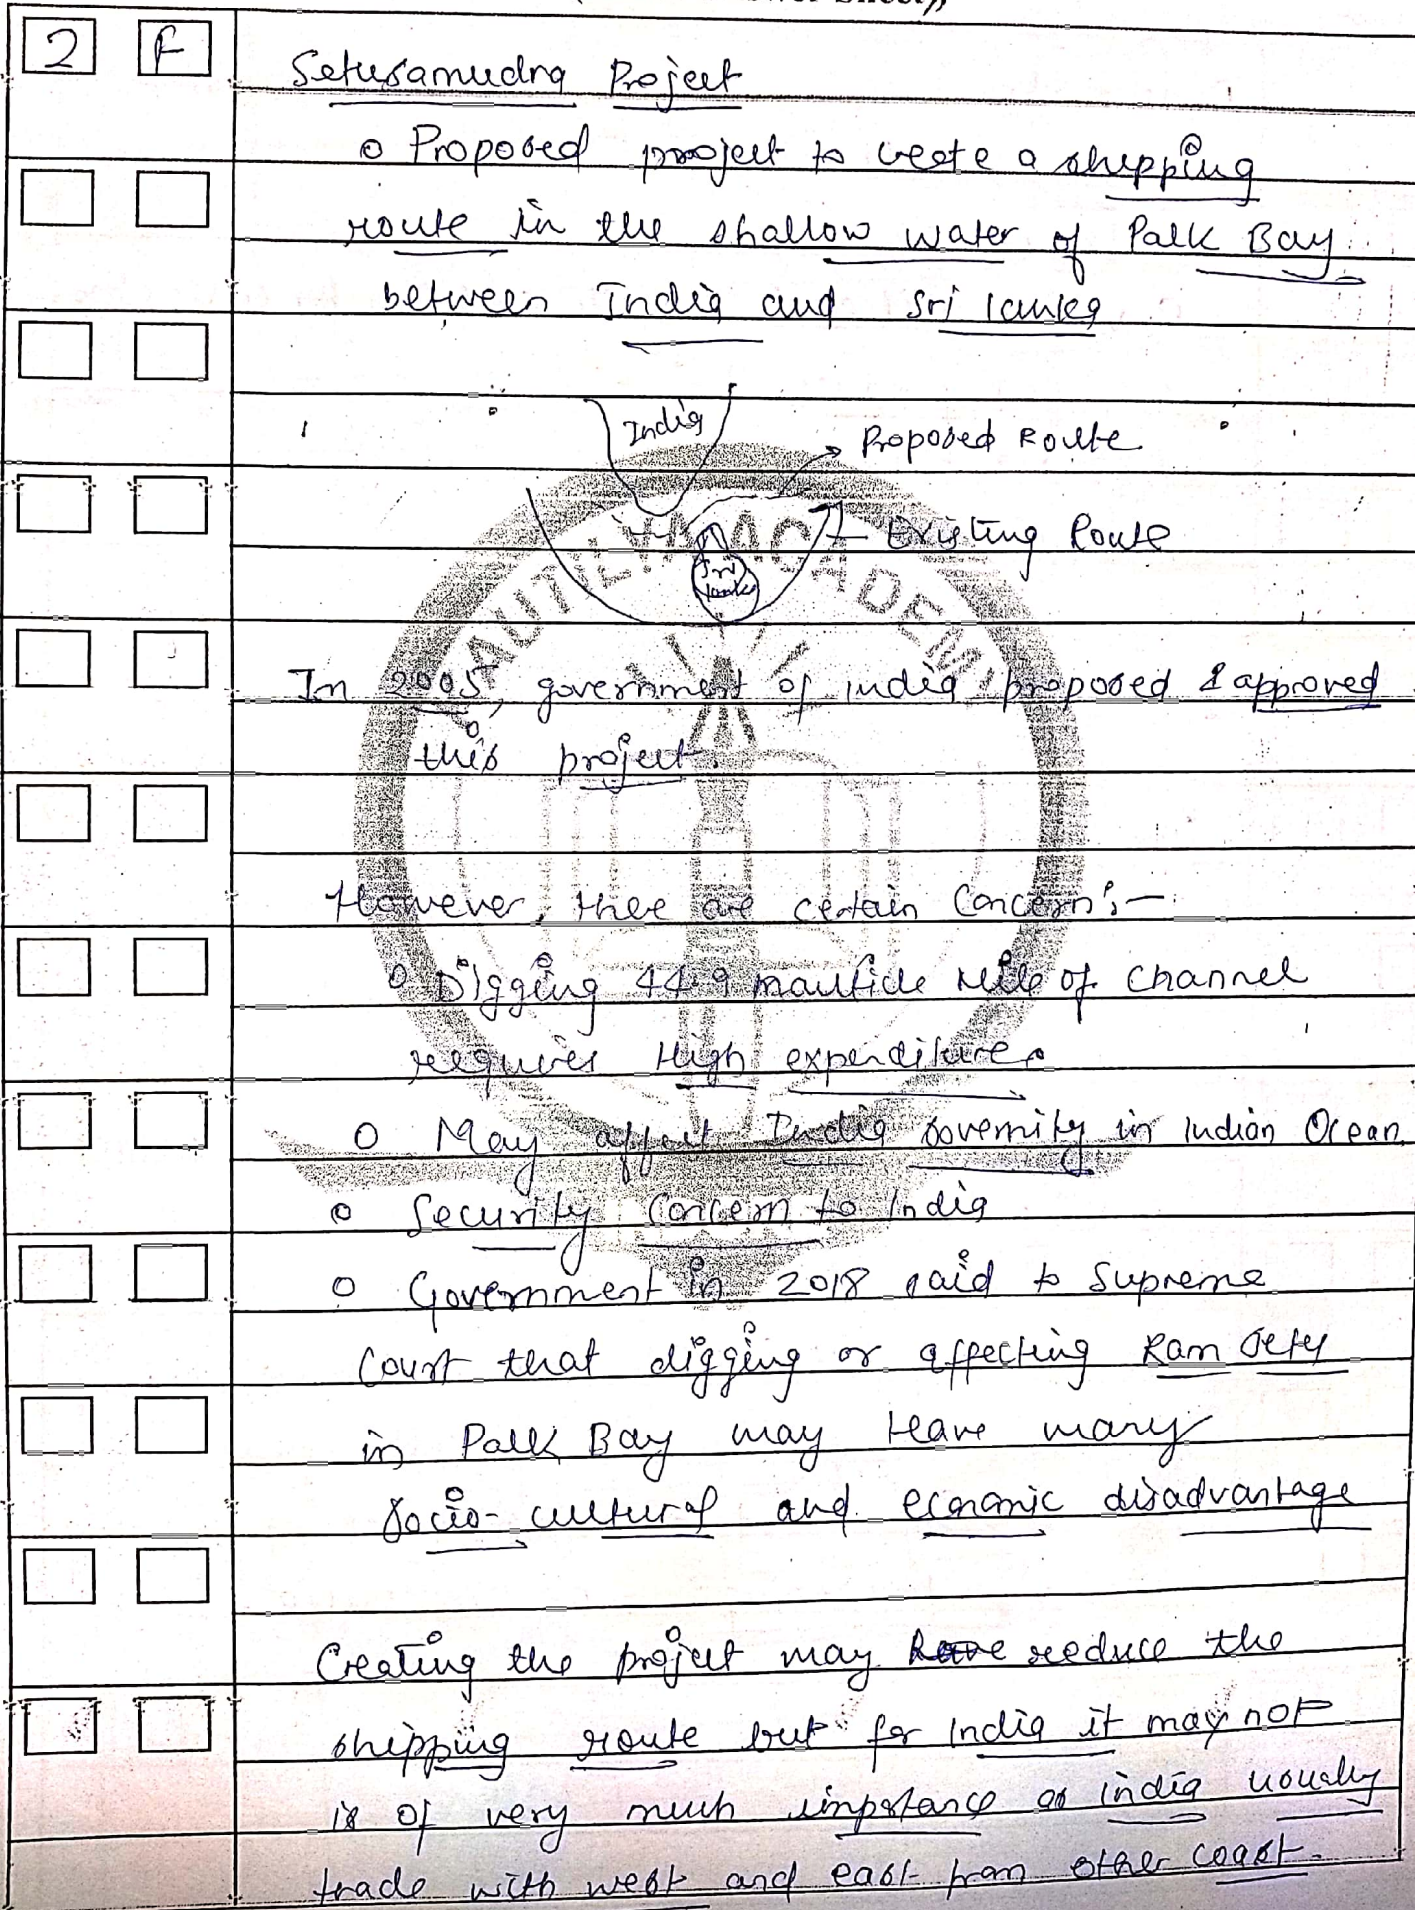 2 F
Setusamudra Project
o Proposed project to create a shipping
route in the shallow water of Palk Bay
between India and Sri lanka
India
Proposed Route
Existing Route
Sri lanka
KAUTILYA ACADEMY
In 2005, government of india proposed & approved
this project.
However, there are certain Concern :-
o Digging 44.9 nautical Mile of Channel
requires High expenditure.
o May affect India in Indian Ocean
o Security Concern to India
o Government in 2018 said to Supreme
Court that digging or affecting Ram Setu
in Palk Bay may Have many
Socio-cultural and economic disadvantage
Creating the project may reduce the
shipping route but for India it may not
is of very much importance as india usually
trade with west and east from other coast.